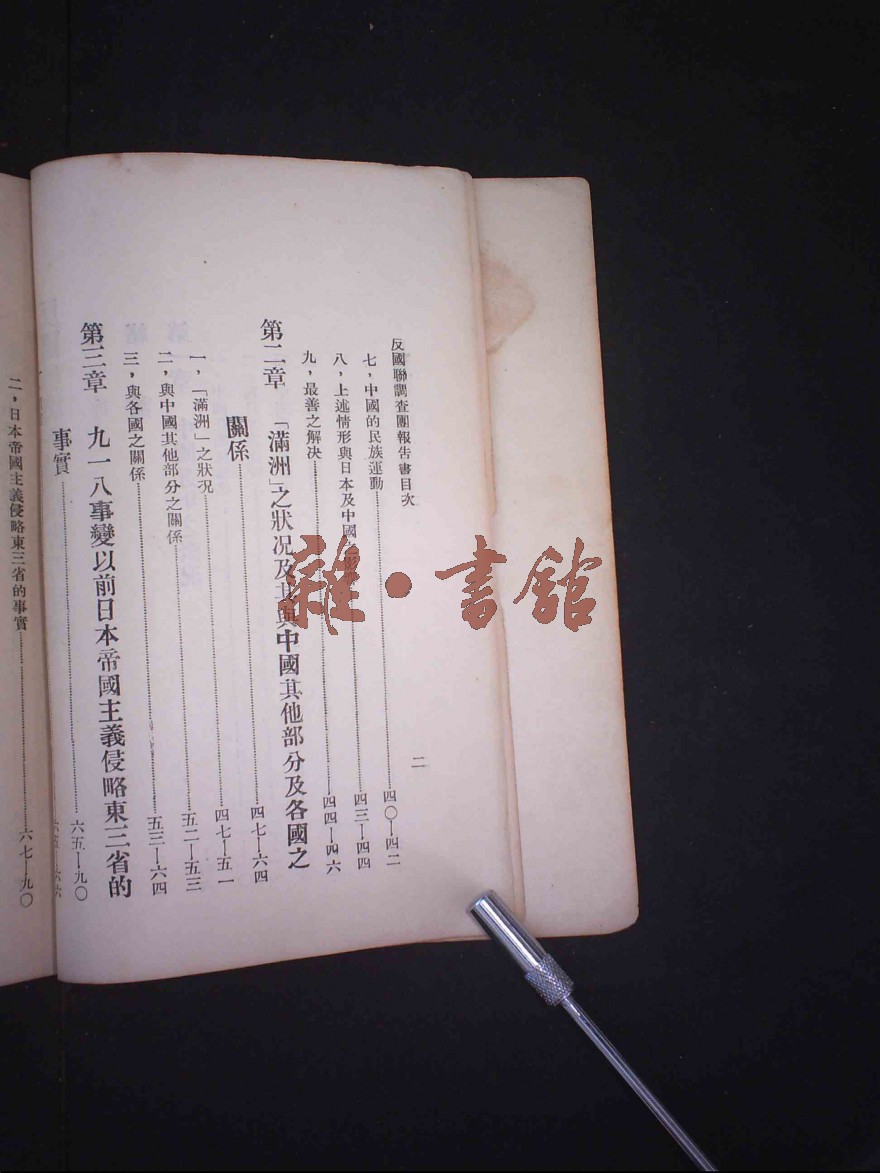 反國聯調查團報告書目次
二
七，中國的民族運動……四〇—四二
八，上述情形與日本及中國之……四三—四四
九，最善之解決……四四—四六
第二章 「滿洲」之狀況及其與中國其他部分及各國之
關係……四七—六四
一，「滿洲」之狀況……四七—五一
二，與中國其他部分之關係……五二—五三
三，與各國之關係……五三—六四
第三章 九一八事變以前日本帝國主義侵略東三省的
事實……六五—九〇
二，日本帝國主義侵略東三省的事實……六七—九〇
雜·書館